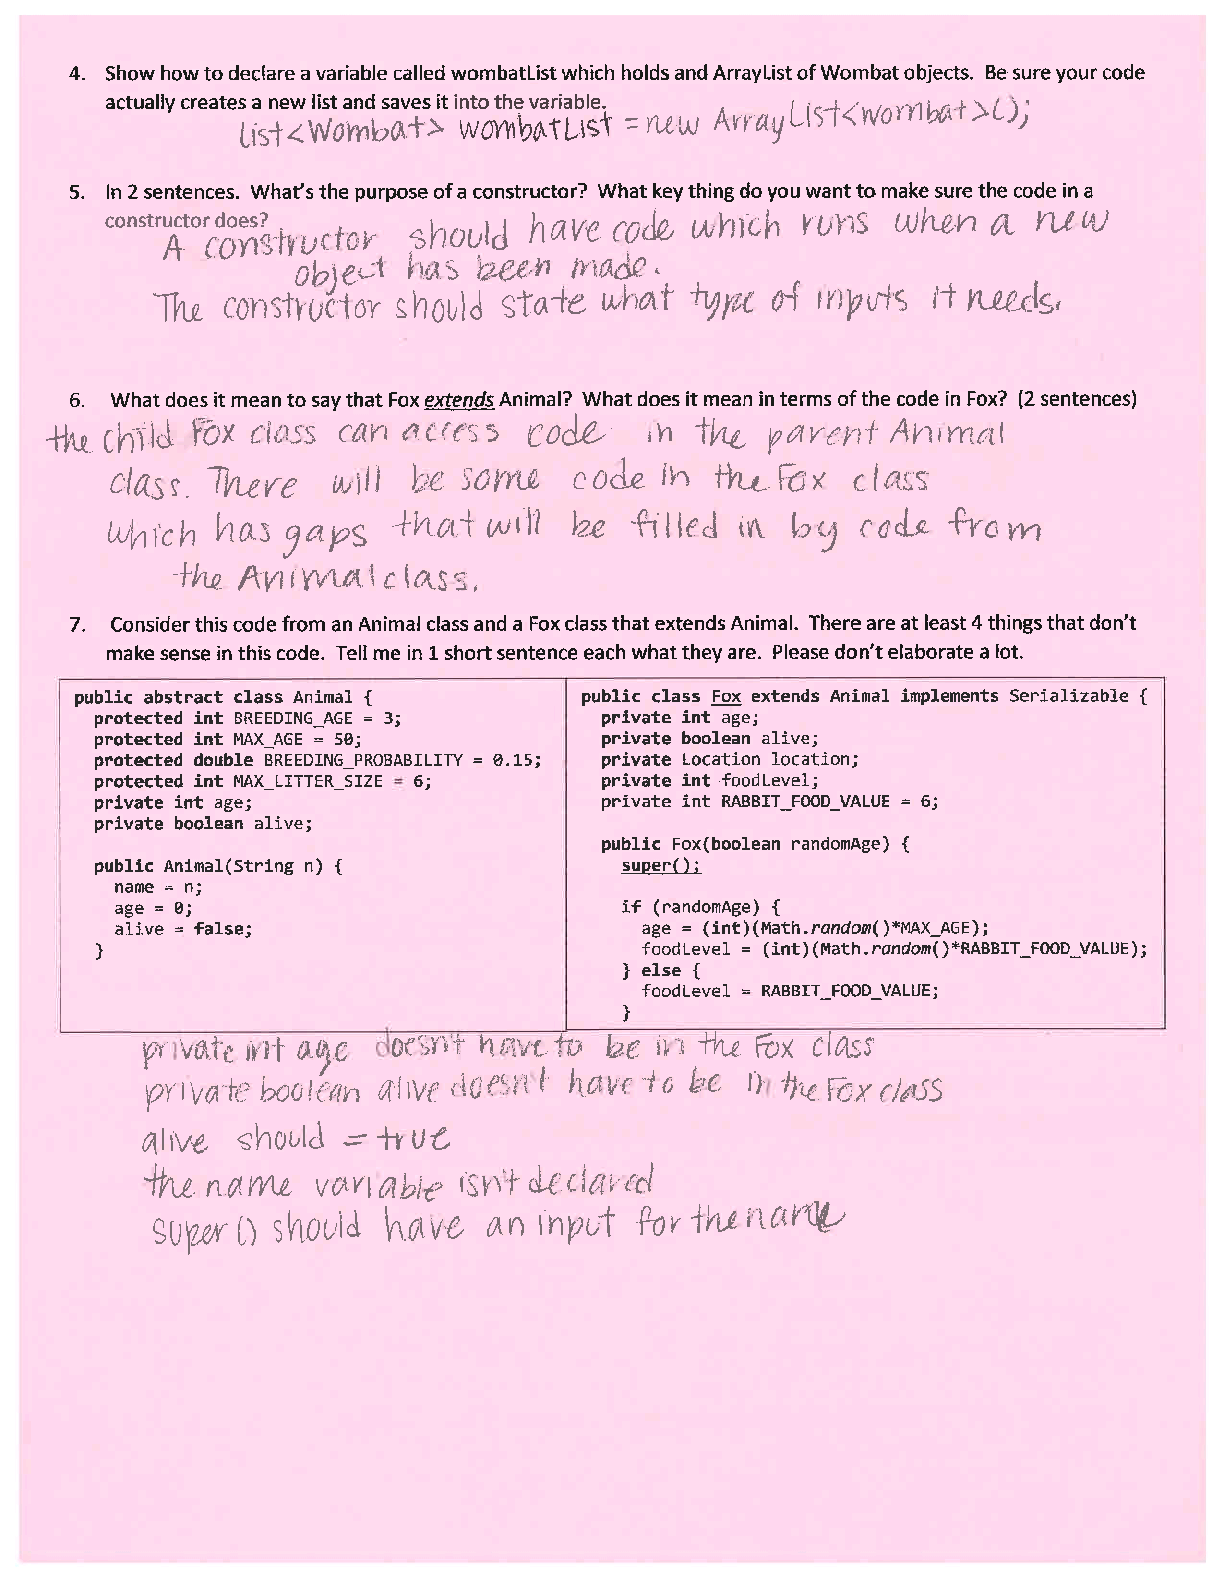 4. Show how to declare a variable called wombatList which holds and ArrayList of Wombat objects. Be sure your code
actually creates a new list and saves it into the variable.
List<Wombat> wombatList = new ArrayList<Wombat>();
5. In 2 sentences. What's the purpose of a constructor? What key thing do you want to make sure the code in a
constructor does?
A constructor should have code which runs when a new
object has been made.
The constructor should state what type of inputs it needs.
6. What does it mean to say that Fox extends Animal? What does it mean in terms of the code in Fox? (2 sentences)
the child Fox class can access code in the parent Animal
class. There will be some code in the Fox class
which has gaps that will be filled in by code from
the Animal class.
7. Consider this code from an Animal class and a Fox class that extends Animal. There are at least 4 things that don't
make sense in this code. Tell me in 1 short sentence each what they are. Please don't elaborate a lot.
public abstract class Animal {
protected int BREEDING_AGE = 3;
protected int MAX_AGE = 50;
protected double BREEDING_PROBABILITY = 0.15;
protected int MAX_LITTER_SIZE = 6;
private int age;
private boolean alive;
public Animal(String n) {
name = n;
age = 0;
alive = false;
}
public class Fox extends Animal implements Serializable {
private int age;
private boolean alive;
private Location location;
private int foodLevel;
private int RABBIT_FOOD_VALUE = 6;
public Fox(boolean randomAge) {
super();
if (randomAge) {
age = (int)(Math.random()*MAX_AGE);
foodLevel = (int)(Math.random()*RABBIT_FOOD_VALUE);
} else {
foodLevel = RABBIT_FOOD_VALUE;
}
private int age doesn't have to be in the Fox class
private boolean alive doesn't have to be in the Fox class
alive should = true
the name variable isn't declared
super() should have an input for the name